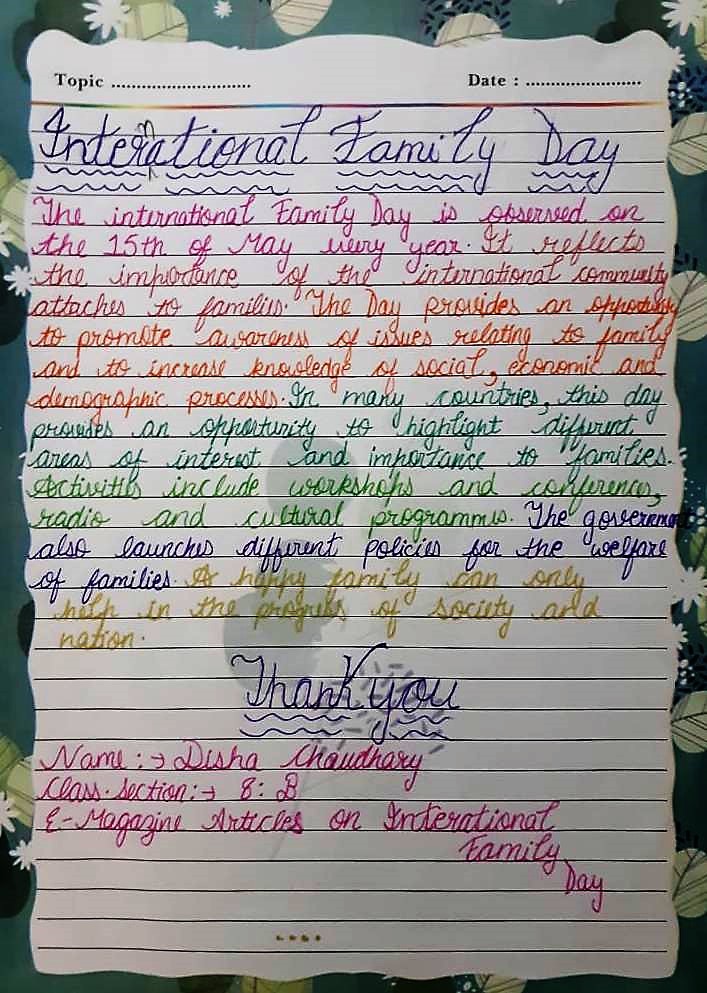 Topic ..............................
Date : .........................
International Family Day
The international Family Day is observed on
the 15th of May every year. It reflects
the importance of the international community
attaches to families. The Day provides an opportunity
to promote awareness of issues relating to family
and to increase knowledge of social, economic and
demographic processes. In many countries, this day
provides an opportunity to highlight different
areas of interest and importance to families.
Activities include workshops and conferences,
radio and cultural programmes. The goverement
also launches different policies for the welfare
of families. A happy family can only
help in the progress of society and
nation.
Thank you
Name :→ Disha Chaudhary
Class-Section :→ 8 : B
E-Magazine Articles on Interational
Family
Day